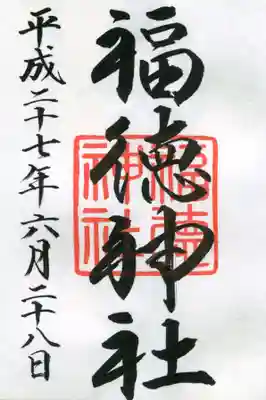 福徳神社
平成二十七年六月二十八日
福徳神社